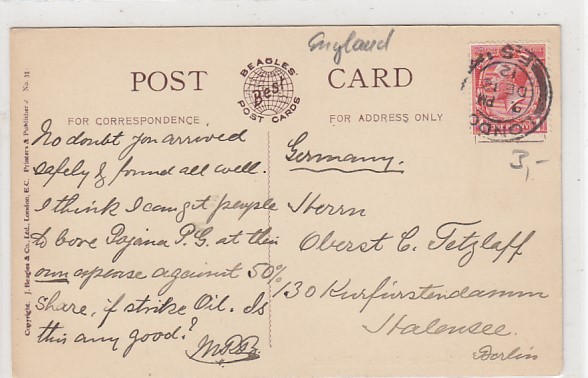 England
POST CARD
BEAGLES'
Best
POST CARDS
FOR CORRESPONDENCE
FOR ADDRESS ONLY
No doubt you arrived
safely & found all well.
I think I can get people
to bore Pojana P.G. at their
own expense against 50%
share, if strike Oil. Is
this any good?
Germany.
Herrn
Oberst C. Tetzlaff
130 Kurfürstendamm
Halensee.
Berlin
3,-
LONDON
S.E.1
9 PM
DE
12
Copyright. J. Beagles & Co., Ltd., London, E.C. Printers & Publishers No. 31